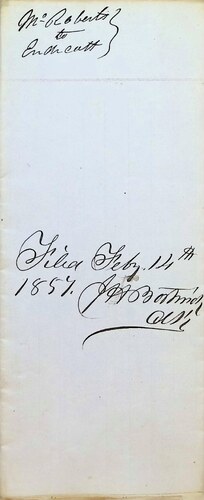 Mc Roberts
to
Endicott
Filed Feby. 14th
1857. J H Bostwick
Clk